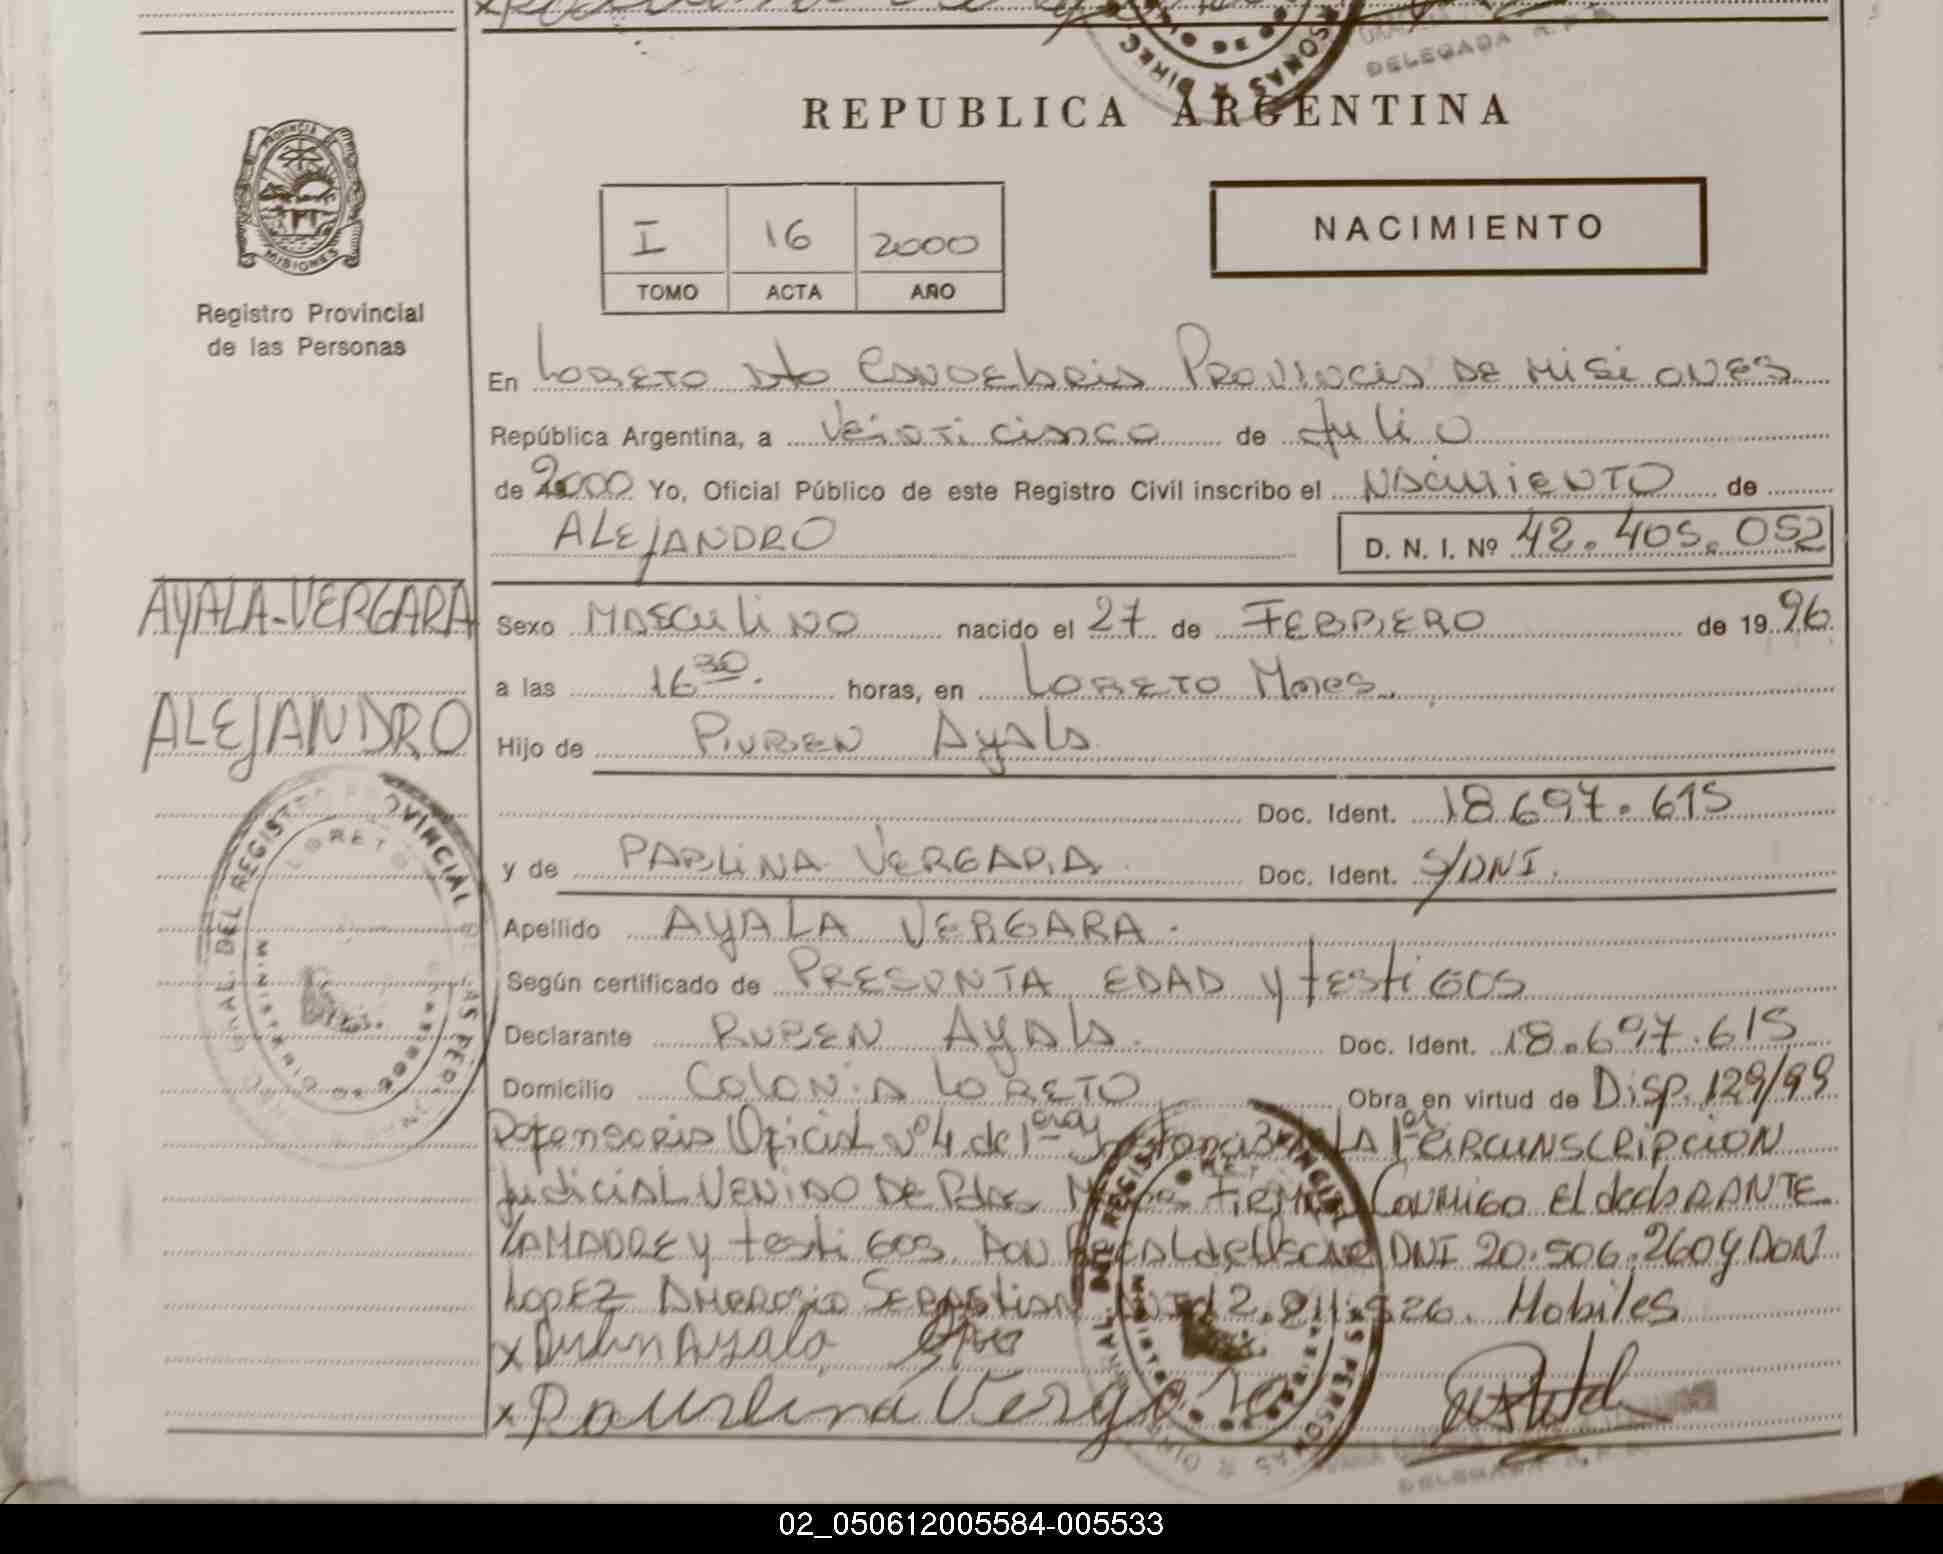 DELEGADA R.P.
REPUBLICA ARGENTINA
PROVINCIA
MISIONES
Registro Provincial
de las Personas
I 16 2000
TOMO ACTA AÑO
NACIMIENTO
En LORETO Dto CANDELARIA PROVINCIA DE MISIONES
República Argentina, a Veinticinco de Julio
de 2000 Yo, Oficial Público de este Registro Civil inscribo el NACIMIENTO de
ALEJANDRO D. N. I. Nº 42.405.052
AYALA-VERGARA
ALEJANDRO
Sexo MASCULINO nacido el 27 de FEBRERO de 1996
a las 16 30. horas, en LORETO Mnes.
Hijo de RUBEN AyALA
Doc. Ident. 18.697.615
y de PAULINA VERGARA. Doc. Ident. S/DNI.
Apellido AYALA VERGARA.
Según certificado de PRESUNTA EDAD y testigos
Declarante RUBEN AyALA. Doc. Ident. 18.697.615
Domicilio COLONIA LORETO Obra en virtud de Disp. 129/99
Defensoria Oficial Nº 4 de 1era Instancia de LA 1er CIRCUNSCRIPCION
Judicial VENIDO DE Pdas. FIRMA CONMIGO El declARANTE
LA MADRE y testigos DON DNI 20.506.260 y DON
LOPEZ AMBROSIO SEBASTIAN Mobiles
x Rubin Ayala
x Paurlina Vergara
DELEGADA R.P.
LORETO
02_050612005584-005533